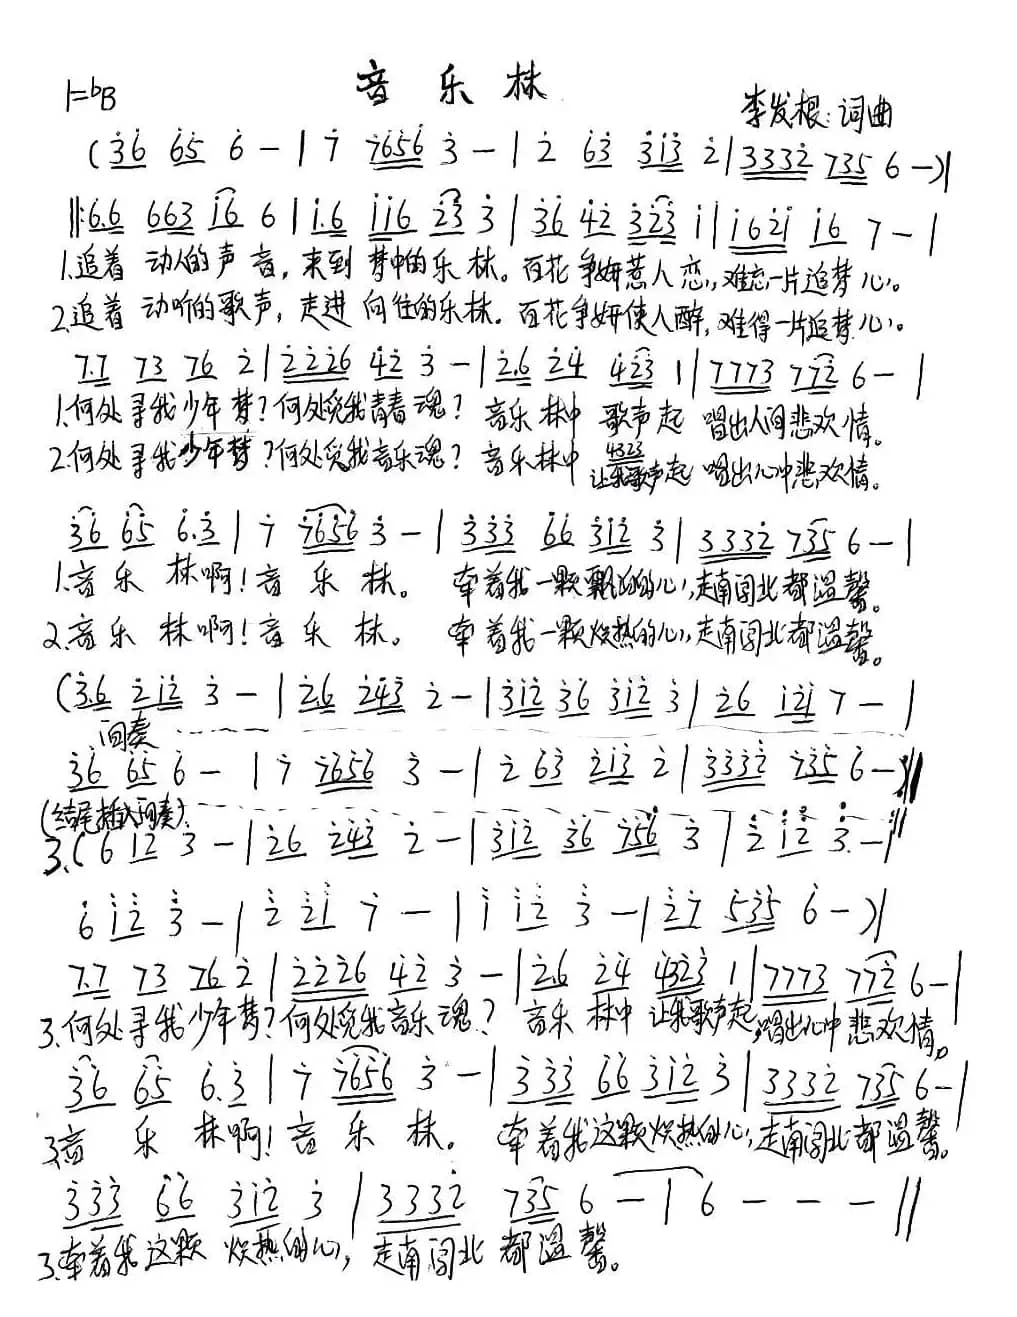 音乐林
1=ᵇB
李发根:词曲
(36 65 6 - | 7 7656 3 - | 2 63 313 2 | 3332 735 6 -)|
‖:6.6 663 16 6 | 1.6 116 23 3 | 36 42 323 1 ‖ 1621 16 7 - |
1.追着 动人的声音,来到 梦中的乐林。百花争妍惹人恋,难忘一片追梦心。
2.追着 动听的歌声,走进 向往的乐林。百花争妍使人醉,难得一片追梦心。
7.7 73 76 2 | 2226 42 3 - | 2.6 24 423 1 | 7773 772 6 - |
1.何处寻我少年梦?何处觅我青春魂? 音乐林中 歌声起 唱出人间悲欢情。
4323
2.何处寻我少年梦?何处觅我音乐魂? 音乐林中 让我歌声起 唱出心中悲欢情。
36 65 6.3 | 7 7656 3 - | 333 66 312 3 | 3332 735 6 - |
1.音乐林啊!音乐林。 牵着我一颗飘泊的心,走南闯北都温馨。
2.音乐林啊!音乐林。 牵着我一颗炽热的心,走南闯北都温馨。
(3.6 212 3 - | 2.6 243 2 - | 312 36 312 3 | 26 121 7 - |
间奏
36 65 6 - | 7 7656 3 - | 2 63 213 2 | 3332 735 6 -):‖
(结尾插入间奏)
3.(6 12 3 - | 26 243 2 - | 312 36 756 3 | 2 12 3. - |
6 12 3 - | 2 21 7 - | 1 12 3 - | 27 535 6 -)|
7.7 73 76 2 | 2226 42 3 - | 2.6 24 4323 1 | 7773 772 6 - |
3.何处寻我少年梦?何处觅我音乐魂? 音乐林中 让我歌声起,唱出心中悲欢情。
36 65 6.3 | 7 7656 3 - | 333 66 312 3 | 3332 735 6 - |
3.音乐林啊!音乐林。 牵着我这颗炽热的心,走南闯北都温馨。
333 66 312 3 | 3332 735 6 - | 6 - - - ‖
3.牵着我这颗 炽热的心,走南闯北 都温馨。